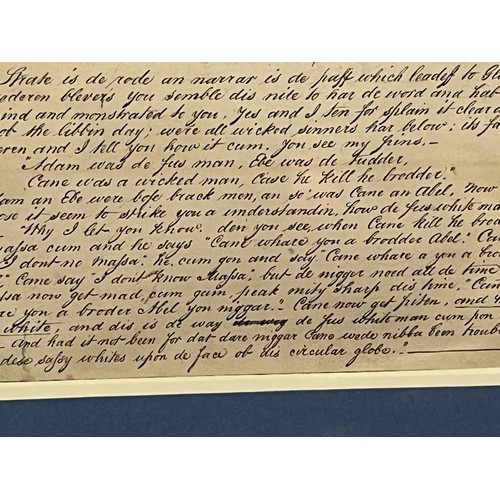 Strate is de rode an narrar is de paff which leadef to Glo
rederen blevers you semble dis nite to har de word and hab
ind and monstrated to you, Yes and I ten for splain it clear
ob the libbin day; were all wicked sinners har below; its fa
eren and I tell you how it cum. You see my frins.—
"Adam was de fus man, Eve was de tudder,
Cane was a wicked man, Case he kill he brodder."
am an Eve were bofe brack men, an so was Cane an Abel. Now
ose it seem to strike you a understandin, how de fus white ma
"Why I let you know. den you see, when Cane kill he brod
massa cum and he says "Cane whare you a brodder Abel." Ca
I dont no massa: he cum gon and say "Cane whare a you a bro
" Cane say "I don't know Massa: but de nigger noed all de time
ssa now get mad, cum gain, peak mity sharp dis time. "Can
re you a broder Abel you niggar." Cane now get friten, and h
white, and dis is de way de fus white man cum pon
And had it not been for dat dare niggar Cane wede nibba been troub
dese sassy whites upon de face ob dis circular globe.—